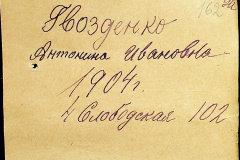 162
Гвозденко
Антонина Ивановна
1904г.
4 Слободская 102